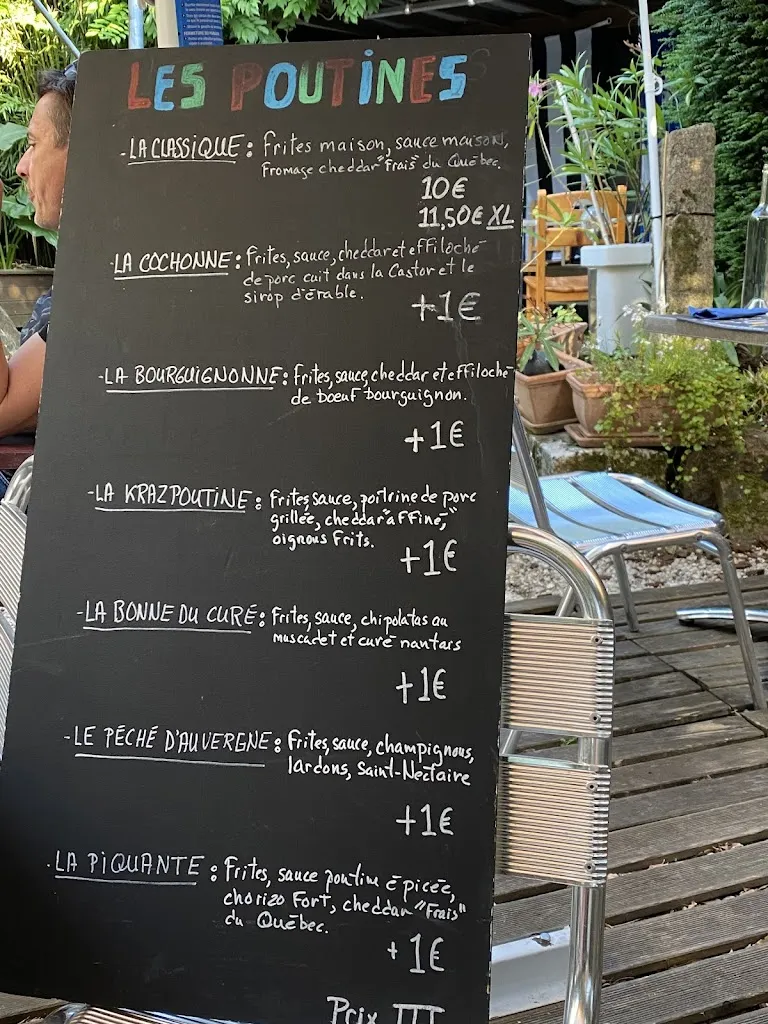 LES POUTINES
- LA CLASSIQUE : Frites maison, sauce maison,
Fromage cheddar "Frais" du Québec.
10€
11,50€ XL
- LA COCHONNE : Frites, sauce, cheddar et effiloché
de porc cuit dans la Castor et le
sirop d'érable.
+1€
- LA BOURGUIGNONNE : Frites, sauce, cheddar et effiloché
de boeuf bourguignon.
+1€
- LA KRAZPOUTINE : Frites, sauce, poitrine de porc
grillée, cheddar "affiné,"
oignons frits.
+1€
- LA BONNE DU CURÉ : Frites, sauce, chipolatas au
muscadet et curé nantais
+1€
- LE PÉCHÉ D'AUVERGNE : Frites, sauce, champignons,
lardons, Saint-Nectaire
+1€
. LA PIQUANTE : Frites, sauce poutine épicée,
chorizo Fort, cheddar "Frais"
du Québec.
+1€
Prix TTC